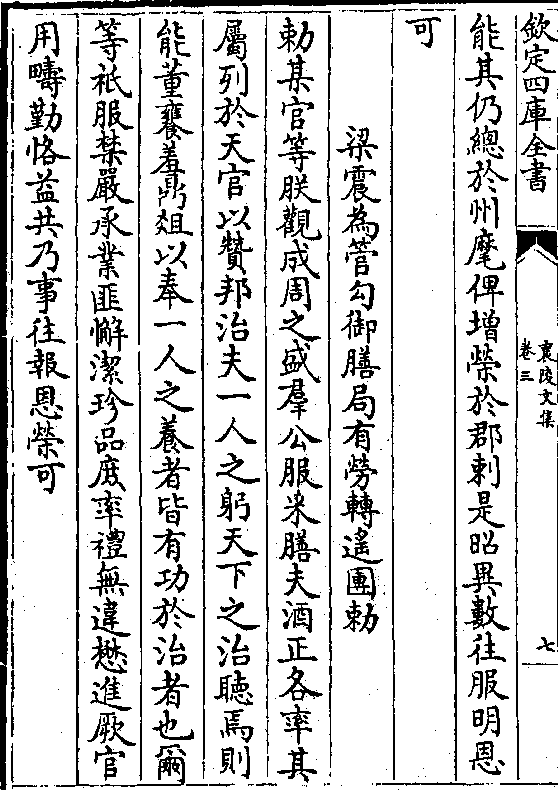 欽定四庫全書
襄陵文集
卷三
七
能其仍總於州麾俾增榮於郡刺是昭異數往服明恩
可
梁震為管勾御膳局有勞轉遙團勅
勅某官等朕觀成周之盛羣公服采膳夫酒正各率其
屬列於天官以贊邦治夫一人之躬天下之治聽焉則
能董饔羞鼎俎以奉一人之養者皆有功於治者也爾
等祇服禁嚴承業匪懈潔珍品庶率禮無違懋進厥官
用疇勤恪益共乃事往報恩榮可